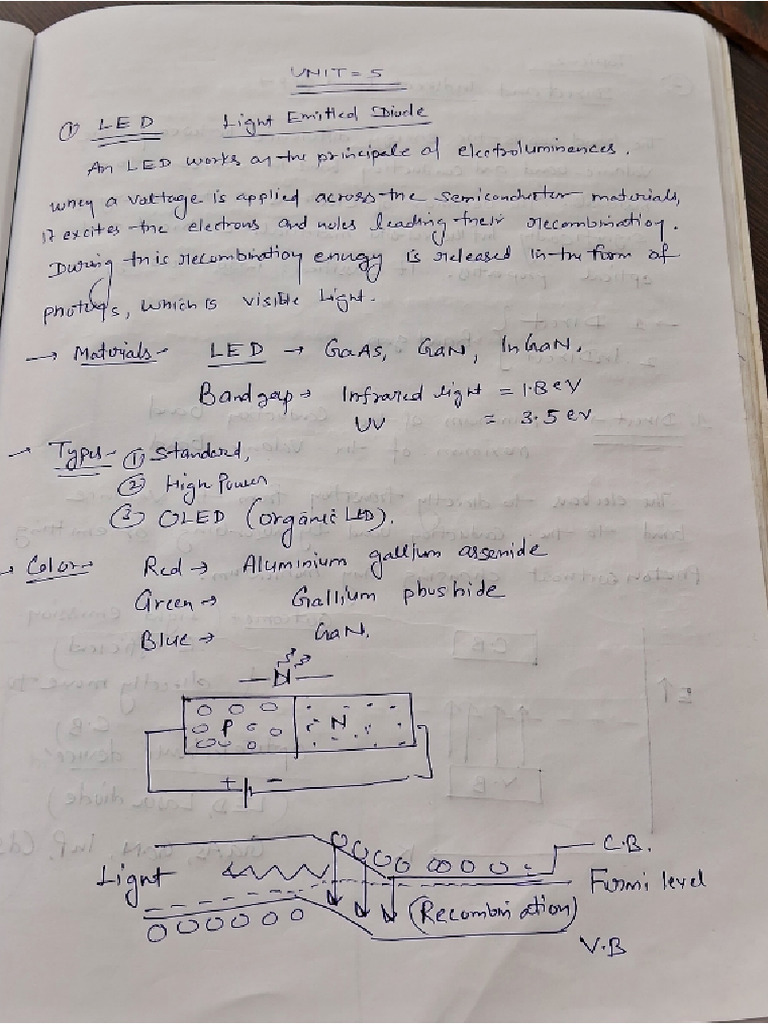 UNIT = 5
① LED Light Emitted Diode
An LED works on the principele of electroluminences.
when a voltage is applied across the semiconductor materials,
it excites the electrons and holes leading their recombination.
During this recombination energy is released in the form of
photons, which is visible light.
→ Materials - LED → GaAs, GaN, InGaN.
Bandgap → Infrared light = 1.8 eV
UV = 3.5 ev
→ Types - ① Standard,
② High Power
③ OLED (organic LED).
→ Color → Red → Aluminium gallium assenide
Green → Gallium phushide
Blue → GaN.
P N
+ -
C.B.
Light Fermi level
(Recombination)
V.B